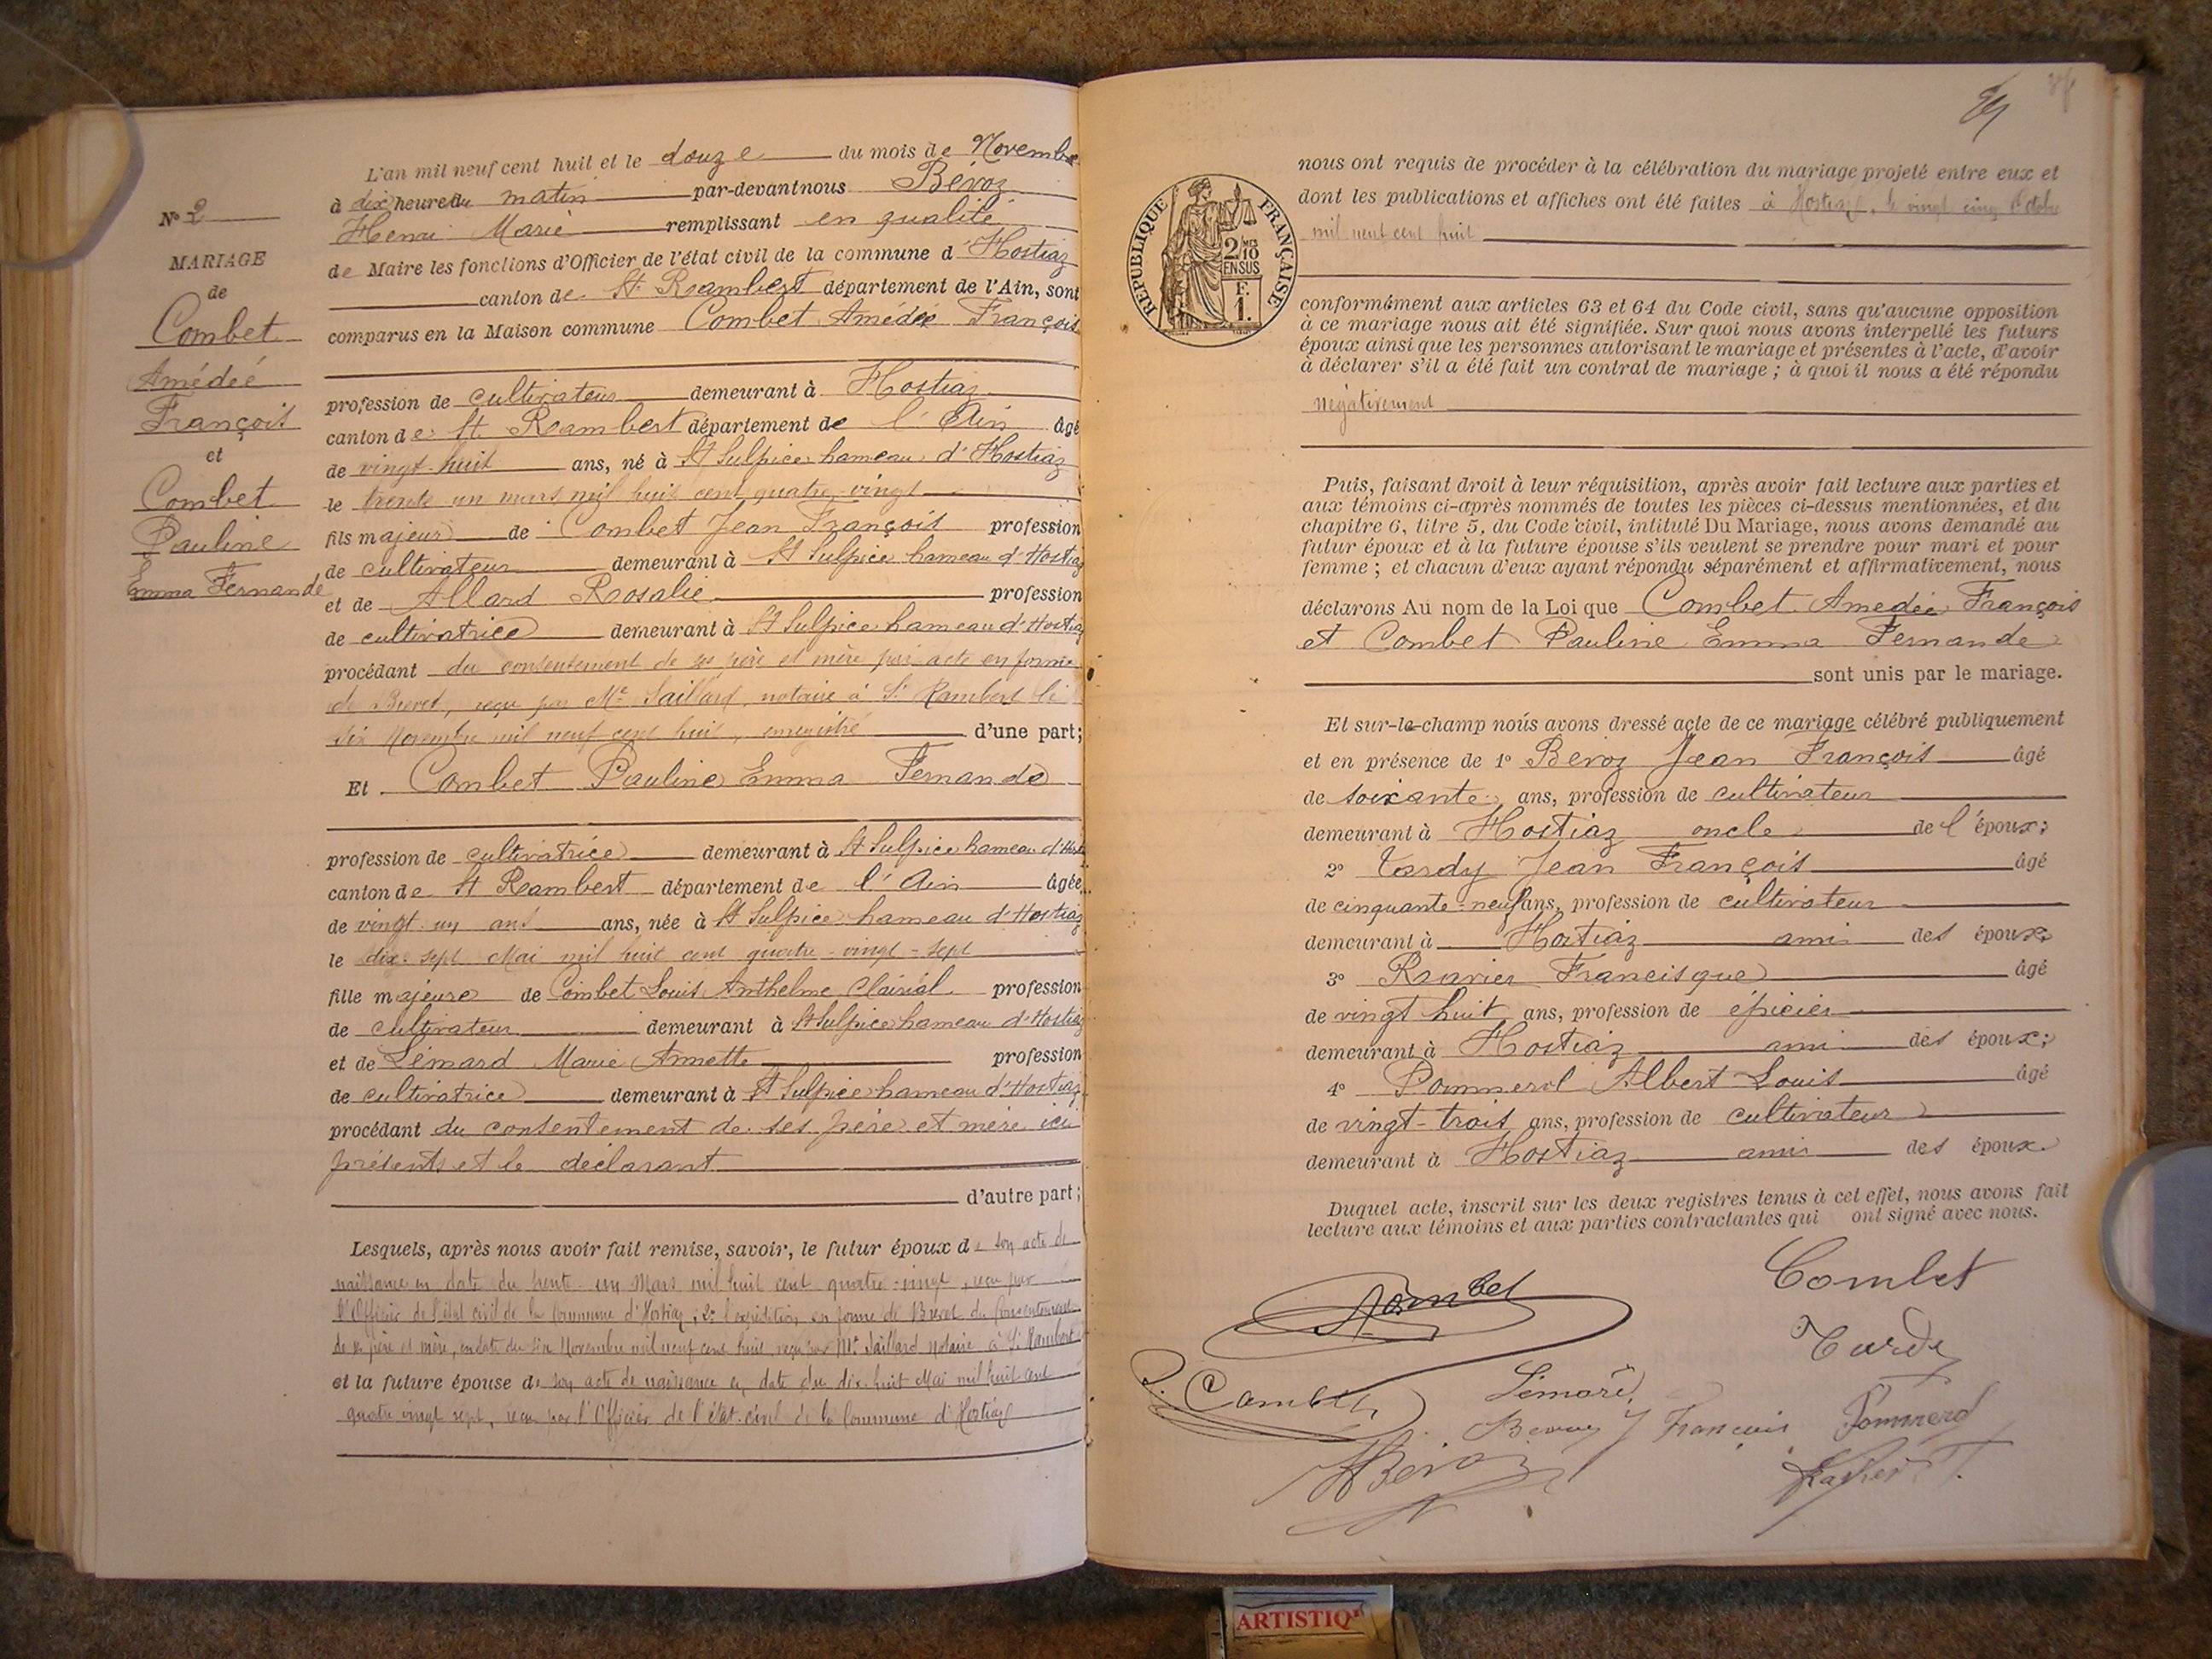 L'an mil neuf cent huit et le douze du mois de Novembre
à dix heure du matin par-devant nous Bévoz
Henri Marie remplissant en qualité
de Maire les fonctions d'Officier de l'état civil de la commune d'Hostiaz
canton de St. Rambert département de l'Ain, sont
comparus en la Maison commune Combet Amédée François
profession de cultivateur demeurant à Hostiaz
canton de St. Rambert département de l'Ain âgé
de vingt-huit ans, né à St Sulpice hameau d'Hostiaz
le trente un mars mil huit cent quatre-vingt
fils majeur de Combet Jean François profession
de cultivateur demeurant à St Sulpice hameau d'Hostiaz
et de Allard Rosalie profession
de cultivatrice demeurant à St Sulpice hameau d'Hostiaz
procédant du consentement de ses père et mère par acte en forme
de Brevet, reçu par Me Saillard, notaire à St Rambert le
six Novembre mil neuf cent huit, enregistré d'une part;
Et Combet Pauline Emma Fernande
profession de cultivatrice demeurant à St Sulpice hameau d'Host
canton de St Rambert département de l'Ain âgée
de vingt un ans ans, née à St Sulpice hameau d'Hostiaz
le dix-sept Mai mil huit cent quatre-vingt-sept
fille majeure de Combet Louis Anthelme Clairial profession
de cultivateur demeurant à St Sulpice hameau d'Hostiaz
et de Lémard Marie Annette profession
de cultivatrice demeurant à St Sulpice hameau d'Hostiaz
procédant du consentement de ses père et mère ici
présents et le déclarant
d'autre part;
Lesquels, après nous avoir fait remise, savoir, le futur époux de son acte de
naissance en date du trente-un Mars mil huit cent quatre-vingt, reçu par
l'Officier de l'état civil de la Commune d'Hostiaz; 2° l'expédition en forme de Brevet du Consentement
de ses père et mère, en date du six Novembre mil neuf cent huit, reçu par Me Saillard notaire à St Rambert
et la future épouse de son acte de naissance en date du dix-huit Mai mil huit cent
quatre vingt sept, reçu par l'Officier de l'état-civil de la Commune d'Hostiaz
N° 2
MARIAGE
de
Combet
Amédée
François
et
Combet
Pauline
Emma Fernande
nous ont requis de procéder à la célébration du mariage projeté entre eux et
dont les publications et affiches ont été faites à Hostiaz, le vingt cinq Octobre
mil neuf cent huit
RÉPUBLIQUE FRANÇAISE
2/10
EN SUS
F.
1.
conformément aux articles 63 et 64 du Code civil, sans qu'aucune opposition
à ce mariage nous ait été signifiée. Sur quoi nous avons interpellé les futurs
époux ainsi que les personnes autorisant le mariage et présentes à l'acte, d'avoir
à déclarer s'il a été fait un contrat de mariage; à quoi il nous a été répondu
négativement
Puis, faisant droit à leur réquisition, après avoir fait lecture aux parties et
aux témoins ci-après nommés de toutes les pièces ci-dessus mentionnées, et du
chapitre 6, titre 5, du Code civil, intitulé Du Mariage, nous avons demandé au
futur époux et à la future épouse s'ils veulent se prendre pour mari et pour
femme; et chacun d'eux ayant répondu séparément et affirmativement, nous
déclarons Au nom de la Loi que Combet Amedée François
et Combet Pauline Emma Fernande
sont unis par le mariage.
Et sur-le-champ nous avons dressé acte de ce mariage célébré publiquement
et en présence de 1° Bevoz Jean François âgé
de soixante ans, profession de cultivateur
demeurant à Hostiaz oncle de l'époux;
2° Tardy Jean François âgé
de cinquante-neuf ans, profession de cultivateur
demeurant à Hostiaz ami des époux
3° Ravier Francisque âgé
de vingt huit ans, profession de épicier
demeurant à Hostiaz ami des époux;
4° Pommerol Albert Louis âgé
de vingt-trois ans, profession de cultivateur
demeurant à Hostiaz ami des époux.
Duquel acte, inscrit sur les deux registres tenus à cet effet, nous avons fait
lecture aux témoins et aux parties contractantes qui ont signé avec nous.
Combet
Combet
Tardy
Combet
Lémard
Bevoz J François
Pommerol
HBévoz
Ravier F.
ARTISTIQ